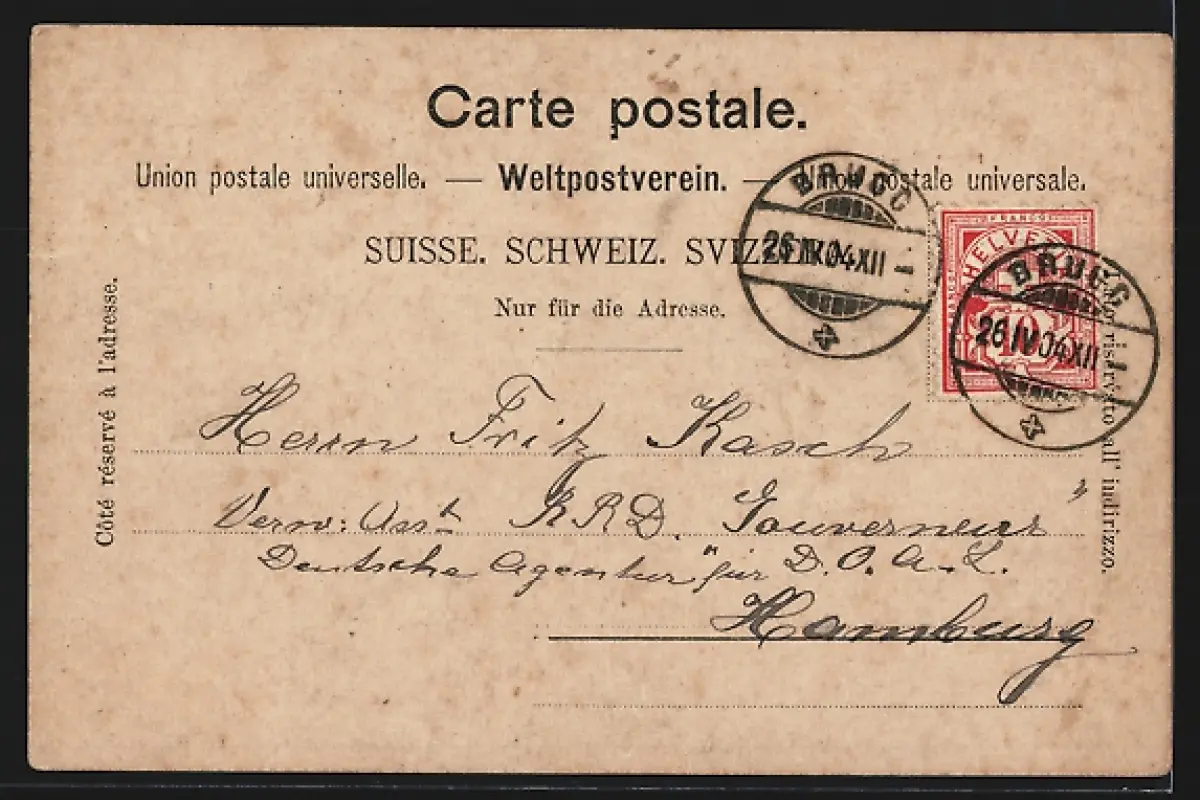 Carte postale.
Union postale universelle. — Weltpostverein. — Union postale universale.
SUISSE. SCHWEIZ. SVIZZERA.
Nur für die Adresse.
Côté réservé à l'adresse.
Lato riservato all' indirizzo.
BRUGG
26 IV 04 XII –
FRANCO
HELVETIA
10
BRUGG
26 IV 04 XII –
Herrn Fritz Kasch
Verw: Asst R.P.D. "Gouverneur"
Deutsche Agentur für D. O. A. L.
Hamburg